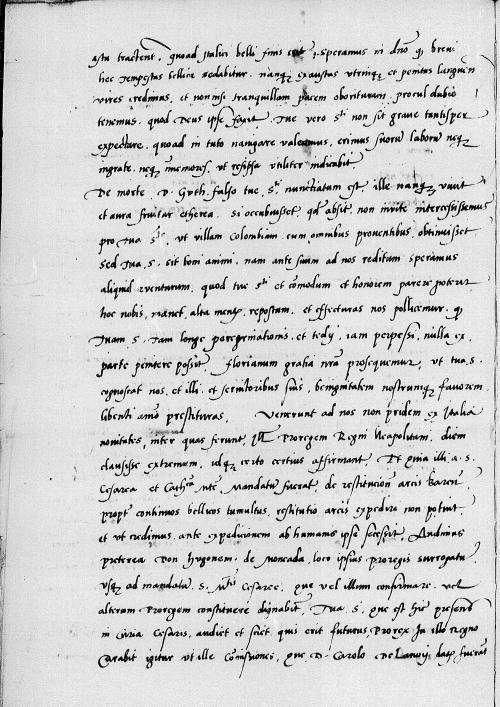 astu tractent, quoad Italici belli finis erit, speramus in dno qd brevi
hec tempestas bellica sedabitur. nanqz exaustas utrinqz et penitus languen
vires credimus, et non nisi tranquillam pacem oborituram procul dubio
tenemus. quod Deus ipse faxit. Tue vero S.ti non sit grave tantisper
expectare, quoad in tuto navigare valeamus, erimus suoru laboru neqz
ingrate, neqz memores, ut ipsa utiliter indicabit
De morte D. Guth. falso tue S.ti nunctiatum est, ille nanqz vivit
et aura fruitur etherea. Si occubuisset, qd absit, non invite intercessissemus
pro tua S.te ut villam Colombiam cum omnibus proventibus obtinuisset
Sed tua .S. sit boni animi. nam ante suum ad nos reditum speramus
aliquid eventurum, quod tue S.ti et comodum et honorem parere poterit
hoc nobis, manet alta mente repostum, et effecturas nos pollicemur. qd
Tuam .S. tam longe peregrinationis et tedij iam perpessi, nulla ex
parte penitere possit. Florianum gratia nra prosequemur, ut tua .S.
cognoscat nos et illi et servitoribus suis, benignitatem nostramqz favorem
libenti animo prestituras. Venerunt ad nos non pridem ex Italia
novitates, inter quas ferunt, Ill. Proregem Regni Neapolitani, diem
clausisse extremum, idqz certo certius affirmant. Et quia illi a .S.
Cesarea et Cath.ca M.te mandatu fuerat, de restitucione arcis Baren.
propt continuos bellicos tumultus, restitutio arcis expediri non potuit
et ut credimus ante expedicionem ab humanis ipse secessit. Audimus
preterea Don Hugonem de Moncada, loco ipsius proregis surrogatu
usqz ad mandata .S. M.tis Cesaree, que vel illum confirmare vel
alterum Proregem constituere dignabit. Tua .S. que est hic presens
in curia Cesaris, audiet et sciet, qui erit futurus Prorex In illo Regno
Curabit igitur ut ille Comissiones, que D. Carolo De Lanoij date fuerant